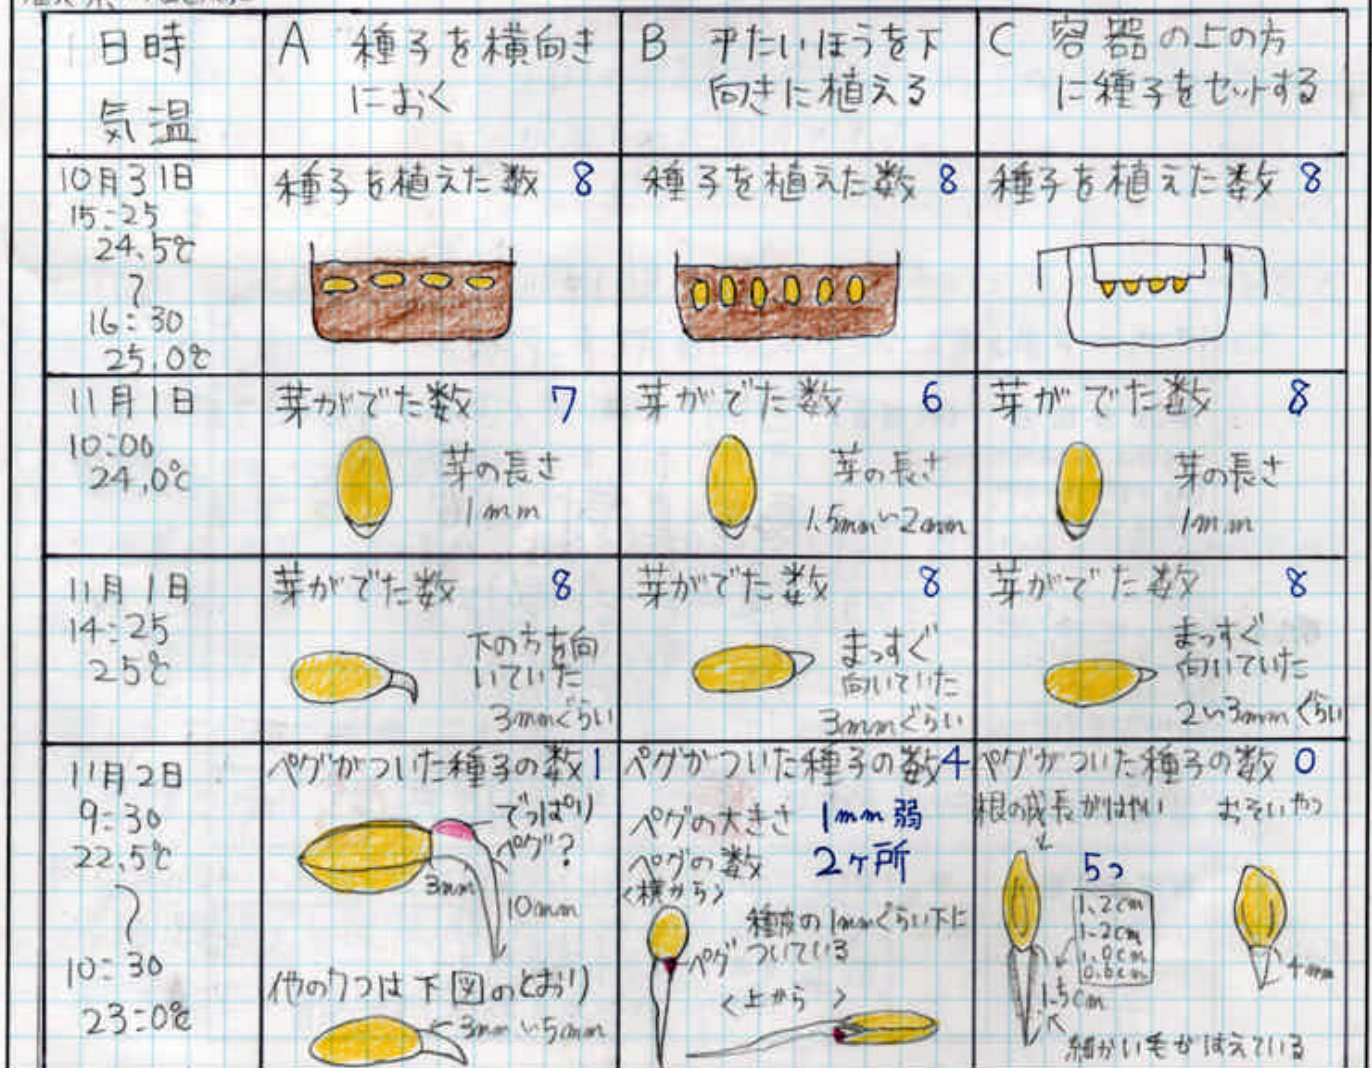 日時
気温
A 種子を横向き
におく
B 平たいほうを下
向きに植える
C 容器の上の方
に種子をセットする
10月31日
15:25
24.5℃
16:30
25.0℃
種子を植えた数 8
種子を植えた数 8
種子を植えた数 8
11月1日
10:00
24.0℃
芽がでた数 7
芽の長さ
1mm
芽がでた数 6
芽の長さ
1.5mm〜2mm
芽がでた数 8
芽の長さ
1mm
11月1日
14:25
25℃
芽がでた数 8
下の方を向
いていた
3mmぐらい
芽がでた数 8
まっすぐ
向いていた
3mmぐらい
芽がでた数 8
まっすぐ
向いていた
2〜3mmぐらい
11月2日
9:30
22.5℃
10:30
23.0℃
ペグがついた種子の数 1
でっぱり
ペグ?
3mm
10mm
他の7つは下図のとおり
3mm〜5mm
ペグがついた種子の数 4
ペグの大きさ 1mm弱
ペグの数 2ヶ所
<横から>
種皮の1mmぐらい下に
ついている
ペグ
<上から>
ペグがついた種子の数 0
根の成長がはやい
おそいやつ
5つ
1.2cm
1.2cm
1.0cm
0.6cm
1.5cm
4mm
細かい毛がはえている